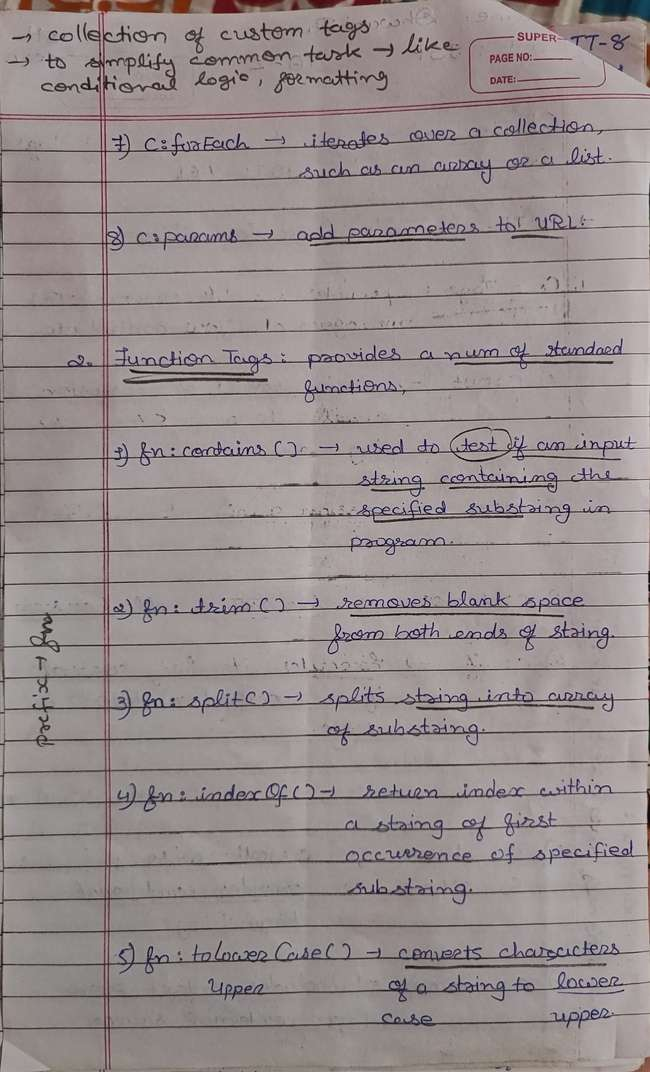 → collection of custom tags
→ to simplify common task → like
conditional logic, formatting
SUPER
TT-8
PAGE NO:
DATE:
7) C:forEach → iterates over a collection,
such as an array or a list.
8) c:params → add parameters to URL.
2. Function Tags: provides a num of standard
functions,
1) fn:contains() → used to test if an input
string containing the
specified substring in
program.
2) fn:trim() → removes blank space
from both ends of string.
prefix → fn
3) fn:split() → splits string into array
of substring.
4) fn:indexOf() → return index within
a string of first
occurrence of specified
substring.
5) fn:toLowerCase() → converts characters
Upper of a string to lower
case upper.